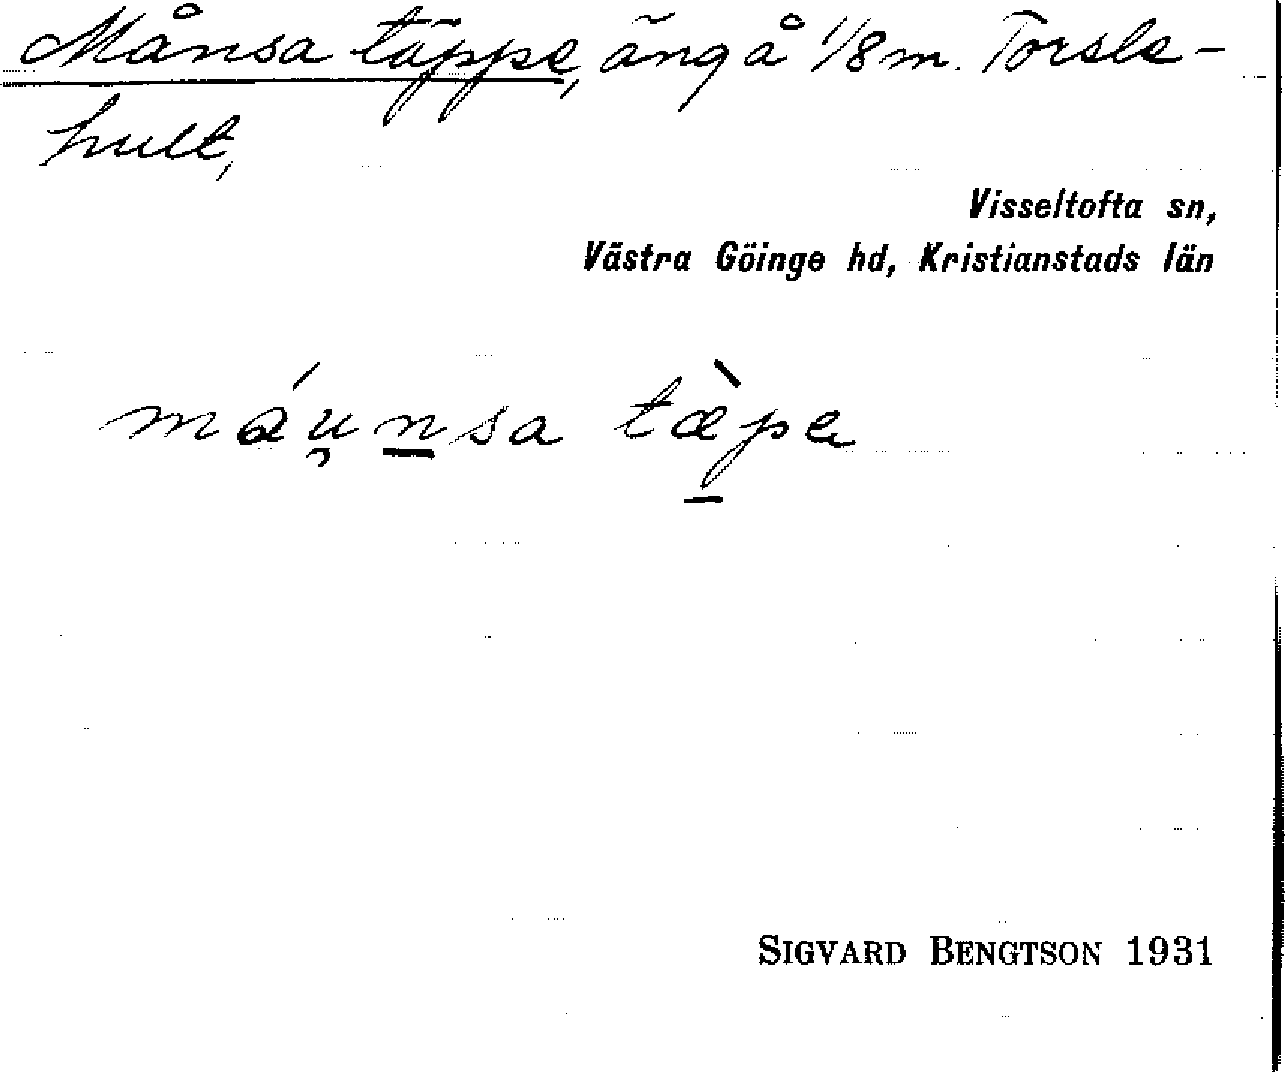 Månsa täppe, äng å 1/8 m. Torsle-
hult,
Visseltofta sn,
Västra Göinge hd, Kristianstads län
máu̯n̲sa tæ̀p̲e
SIGVARD BENGTSON 1931